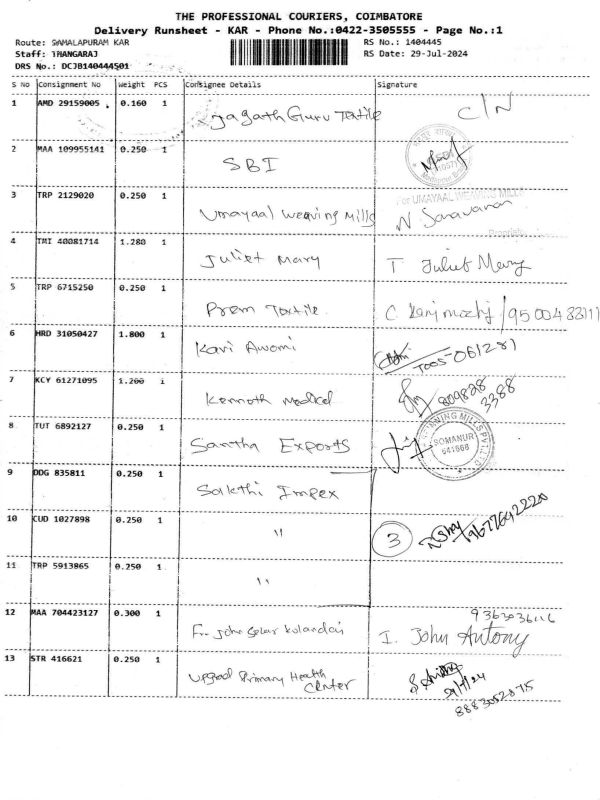 THE PROFESSIONAL COURIERS, COIMBATORE
Delivery Runsheet - KAR - Phone No.:0422-3505555 - Page No.:1
Route: SAMALAPURAM KAR RS No.: 1404445
Staff: THANGARAJ RS Date: 29-Jul-2024
DRS No.: DCJB140444501
S No Consignment No Weight PCS Consignee Details Signature
1 AMD 29159005 0.160 1 Jagath Guru Textile C/N
2 MAA 109955141 0.250 1 SBI
3 TRP 2129020 0.250 1 Umayaal Weaving Mills For UMAYAAL WEAVING MILLS
N Saravanan
4 TMI 40081714 1.280 1 Juliet Mary T Juliet Mary
5 TRP 6715250 0.250 1 Prem Textile C.
6 HRD 31050427 1.800 1 Kavi Awomi
7 KCY 61271095 1.200 1 Medical 809828
3388
8 TUT 6892127 0.250 1 Santha Exports SPINNING MILLS PVT LTD
SOMANUR
641668
9 DDG 835811 0.250 1 Sakthi Impex
10 CUD 1027898 0.250 1 " 3
11 TRP 5913865 0.250 1 "
12 MAA 704423127 0.300 1 Fr. John Kulandai 9363036116
I. John Antony
13 STR 416621 0.250 1 Upgrad Primary Health
Center
29/7/24
8883052875